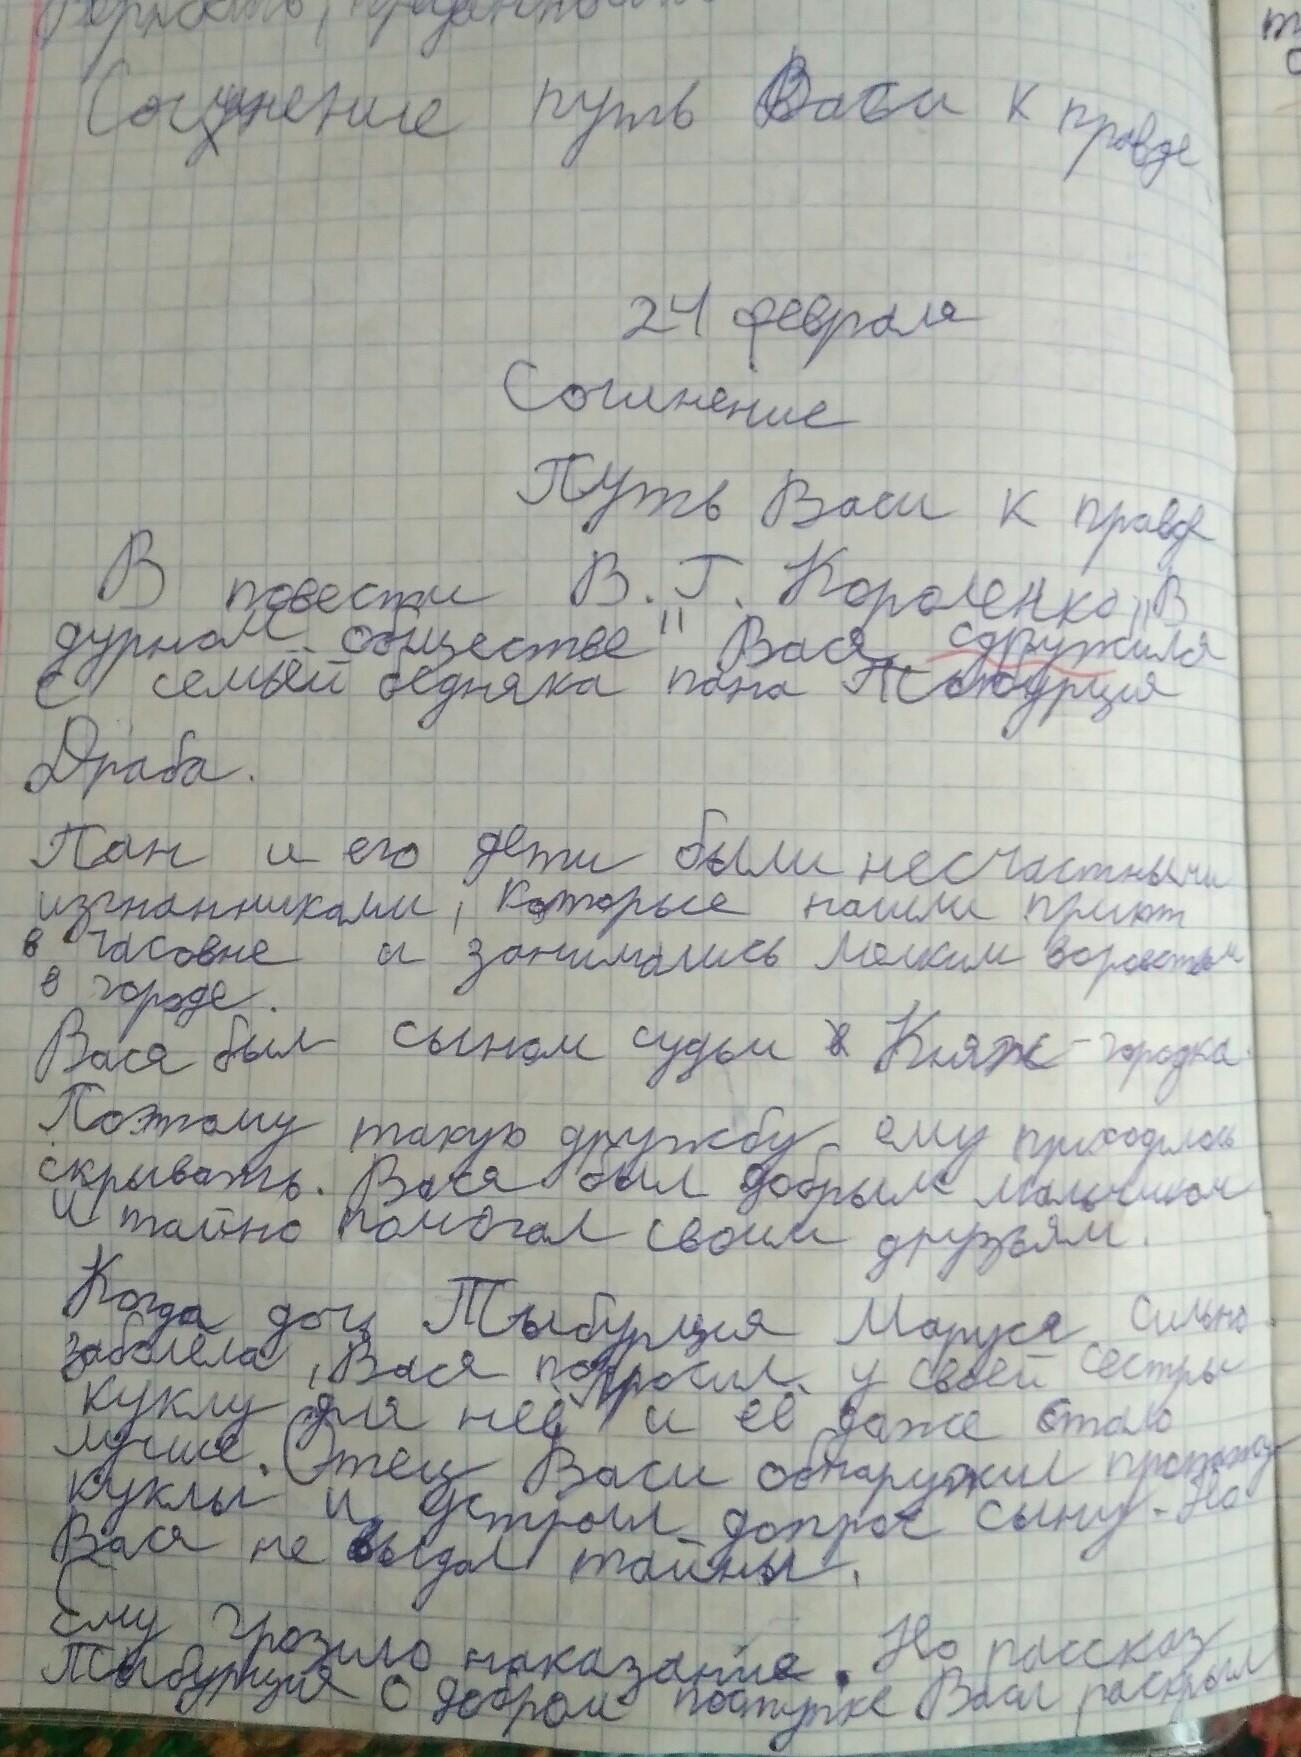 Верность, преданность
Сочинение путь Васи к правде
24 февраля
Сочинение
Путь Васи к правде
В повести В. Г. Короленко „В
дурном обществе" Вася сдружился
с семьёй бедняка пана Тыбурция
Драба.
Пан и его дети были несчастными
изгнанниками, которые нашли приют
в часовне и занимались мелким воровством
в городе.
Вася был сыном судьи в Княж-городка.
Поэтому такую дружбу ему приходилось
скрывать. Вася был добрым мальчиком
и тайно помогал своим друзьям.
Когда доч Тыбурция Маруся сильно
заболела, Вася попросил у своей сестры
куклу для неё и ей даже стало
лучше. Отец Васи обнаружил пропажу
куклы и устроил допрос сыну. Но
Вася не выдал тайны.
Ему грозило наказание. Но рассказ
Тыбурция о добром поступке Васи раскрыл